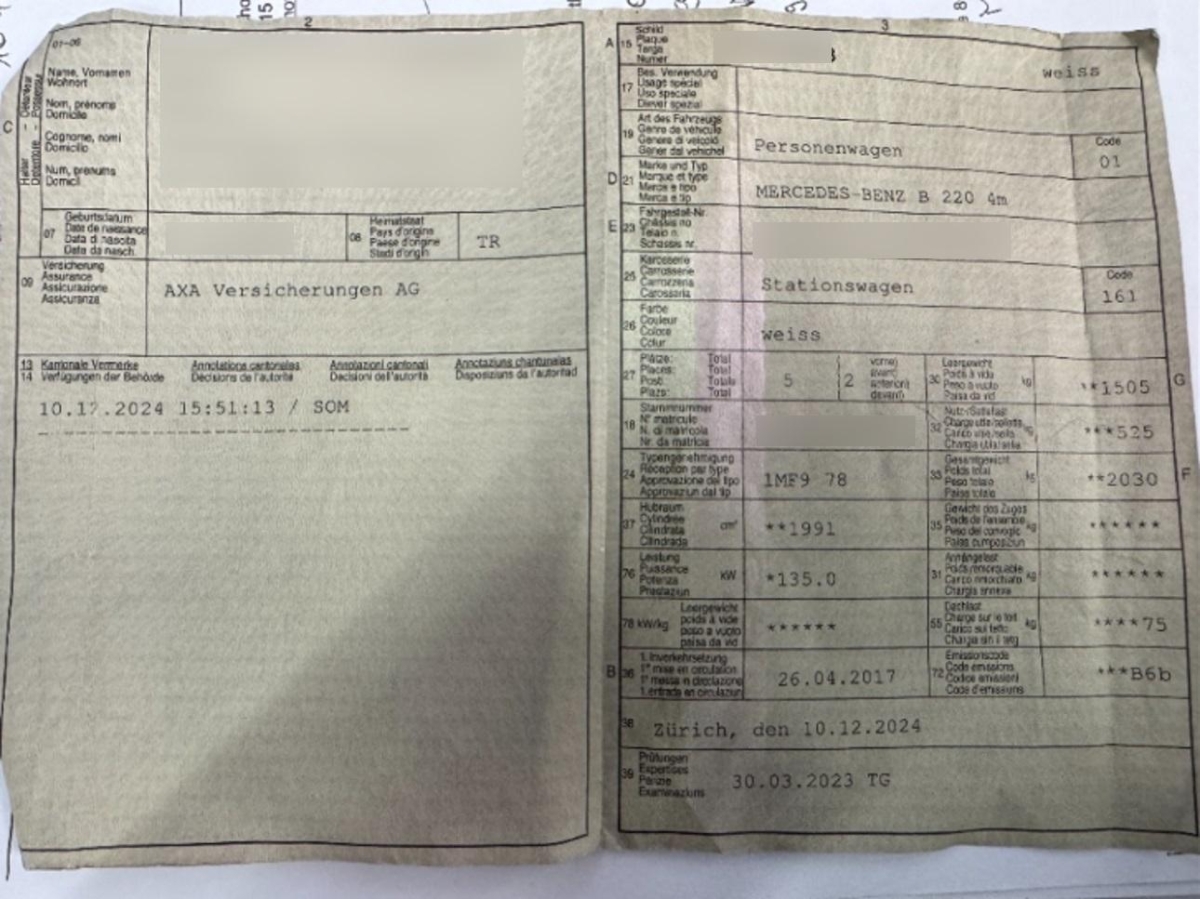 2
01-06
Name, Vornamen
Wohnort
Nom, prénoms
Domicile
Cognome, nomi
Domicilio
Num, prenums
Domicil
C
07
Geburtsdatum
Date de naissance
Data di nascita
Data da nasch.
08
Heimatstaat
Pays d'origine
Paese d'origine
Stadi d'origin
TR
09
Versicherung
Assurance
Assicurazione
Assicuranza
AXA Versicherungen AG
13 Kantonale Vermerke Annotations cantonales Annotazioni cantonali Annotaziuns chantunalas
14 Verfügungen der Behörde Décisions de l'autorité Decisioni dell'autorità Disposiziuns da l'autoritad
10.12.2024 15:51:13 / SOM
3
A 15
Schild
Plaque
Targa
Numer
weiss
17
Bes. Verwendung
Usage spécial
Uso speciale
Diever spezial
19
Art des Fahrzeugs
Genre de véhicule
Genere di veicolo
Gener dal vehichel
Personenwagen
Code
01
D 21
Marke und Typ
Marque et type
Marca e tipo
Marca e tip
MERCEDES-BENZ B 220 4m
E 23
Fahrgestell-Nr.
Châssis no
Telaio n.
Schassis nr.
25
Karosserie
Carrosserie
Carrozzeria
Carossaria
Stationswagen
Code
161
26
Farbe
Couleur
Colore
Colur
weiss
27
Plätze: Total
Places: Total
Posti: Totale
Plazs: Total
5
2
vorne)
avant)
anteriori)
davant)
30
Leergewicht
Poids à vide
Peso a vuoto
Paisa da vid
kg
**1505
G
18
Stammnummer
N° matricule
N. di matricola
Nr. da matricla
32
***525
24
Typengenehmigung
Réception par type
Approvazione del tipo
Approvaziun dal tip
1MF9 78
33
Gesamtgewicht
Poids total
Peso totale
Paisa totala
kg
**2030
F
37
Hubraum
Cylindrée
Cilindrata
Cilindrada
cm³
**1991
35
Gewicht des Zuges
kg
******
76
Leistung
Puissance
Potenza
Prestaziun
kW
*135.0
31
Anhängelast
Poids remorquable
Carico rimorchiato
Chargia annexa
kg
******
78 kW/kg
Leergewicht
poids à vide
peso a vuoto
paisa da vid
******
55
Dachlast
Charge sur le toit
Carico sul tetto
Chargia sin il tetg
kg
****75
B 36
1. Inverkehrsetzung
1re mise en circulation
1a messa in circolazione
1. entrada en circulaziun
26.04.2017
72
Emissionscode
Code émissions
Codice emissioni
Code d'emissiuns
***B6b
38
Zürich, den 10.12.2024
39
Prüfungen
Expertises
Perizie
Examinaziuns
30.03.2023 TG